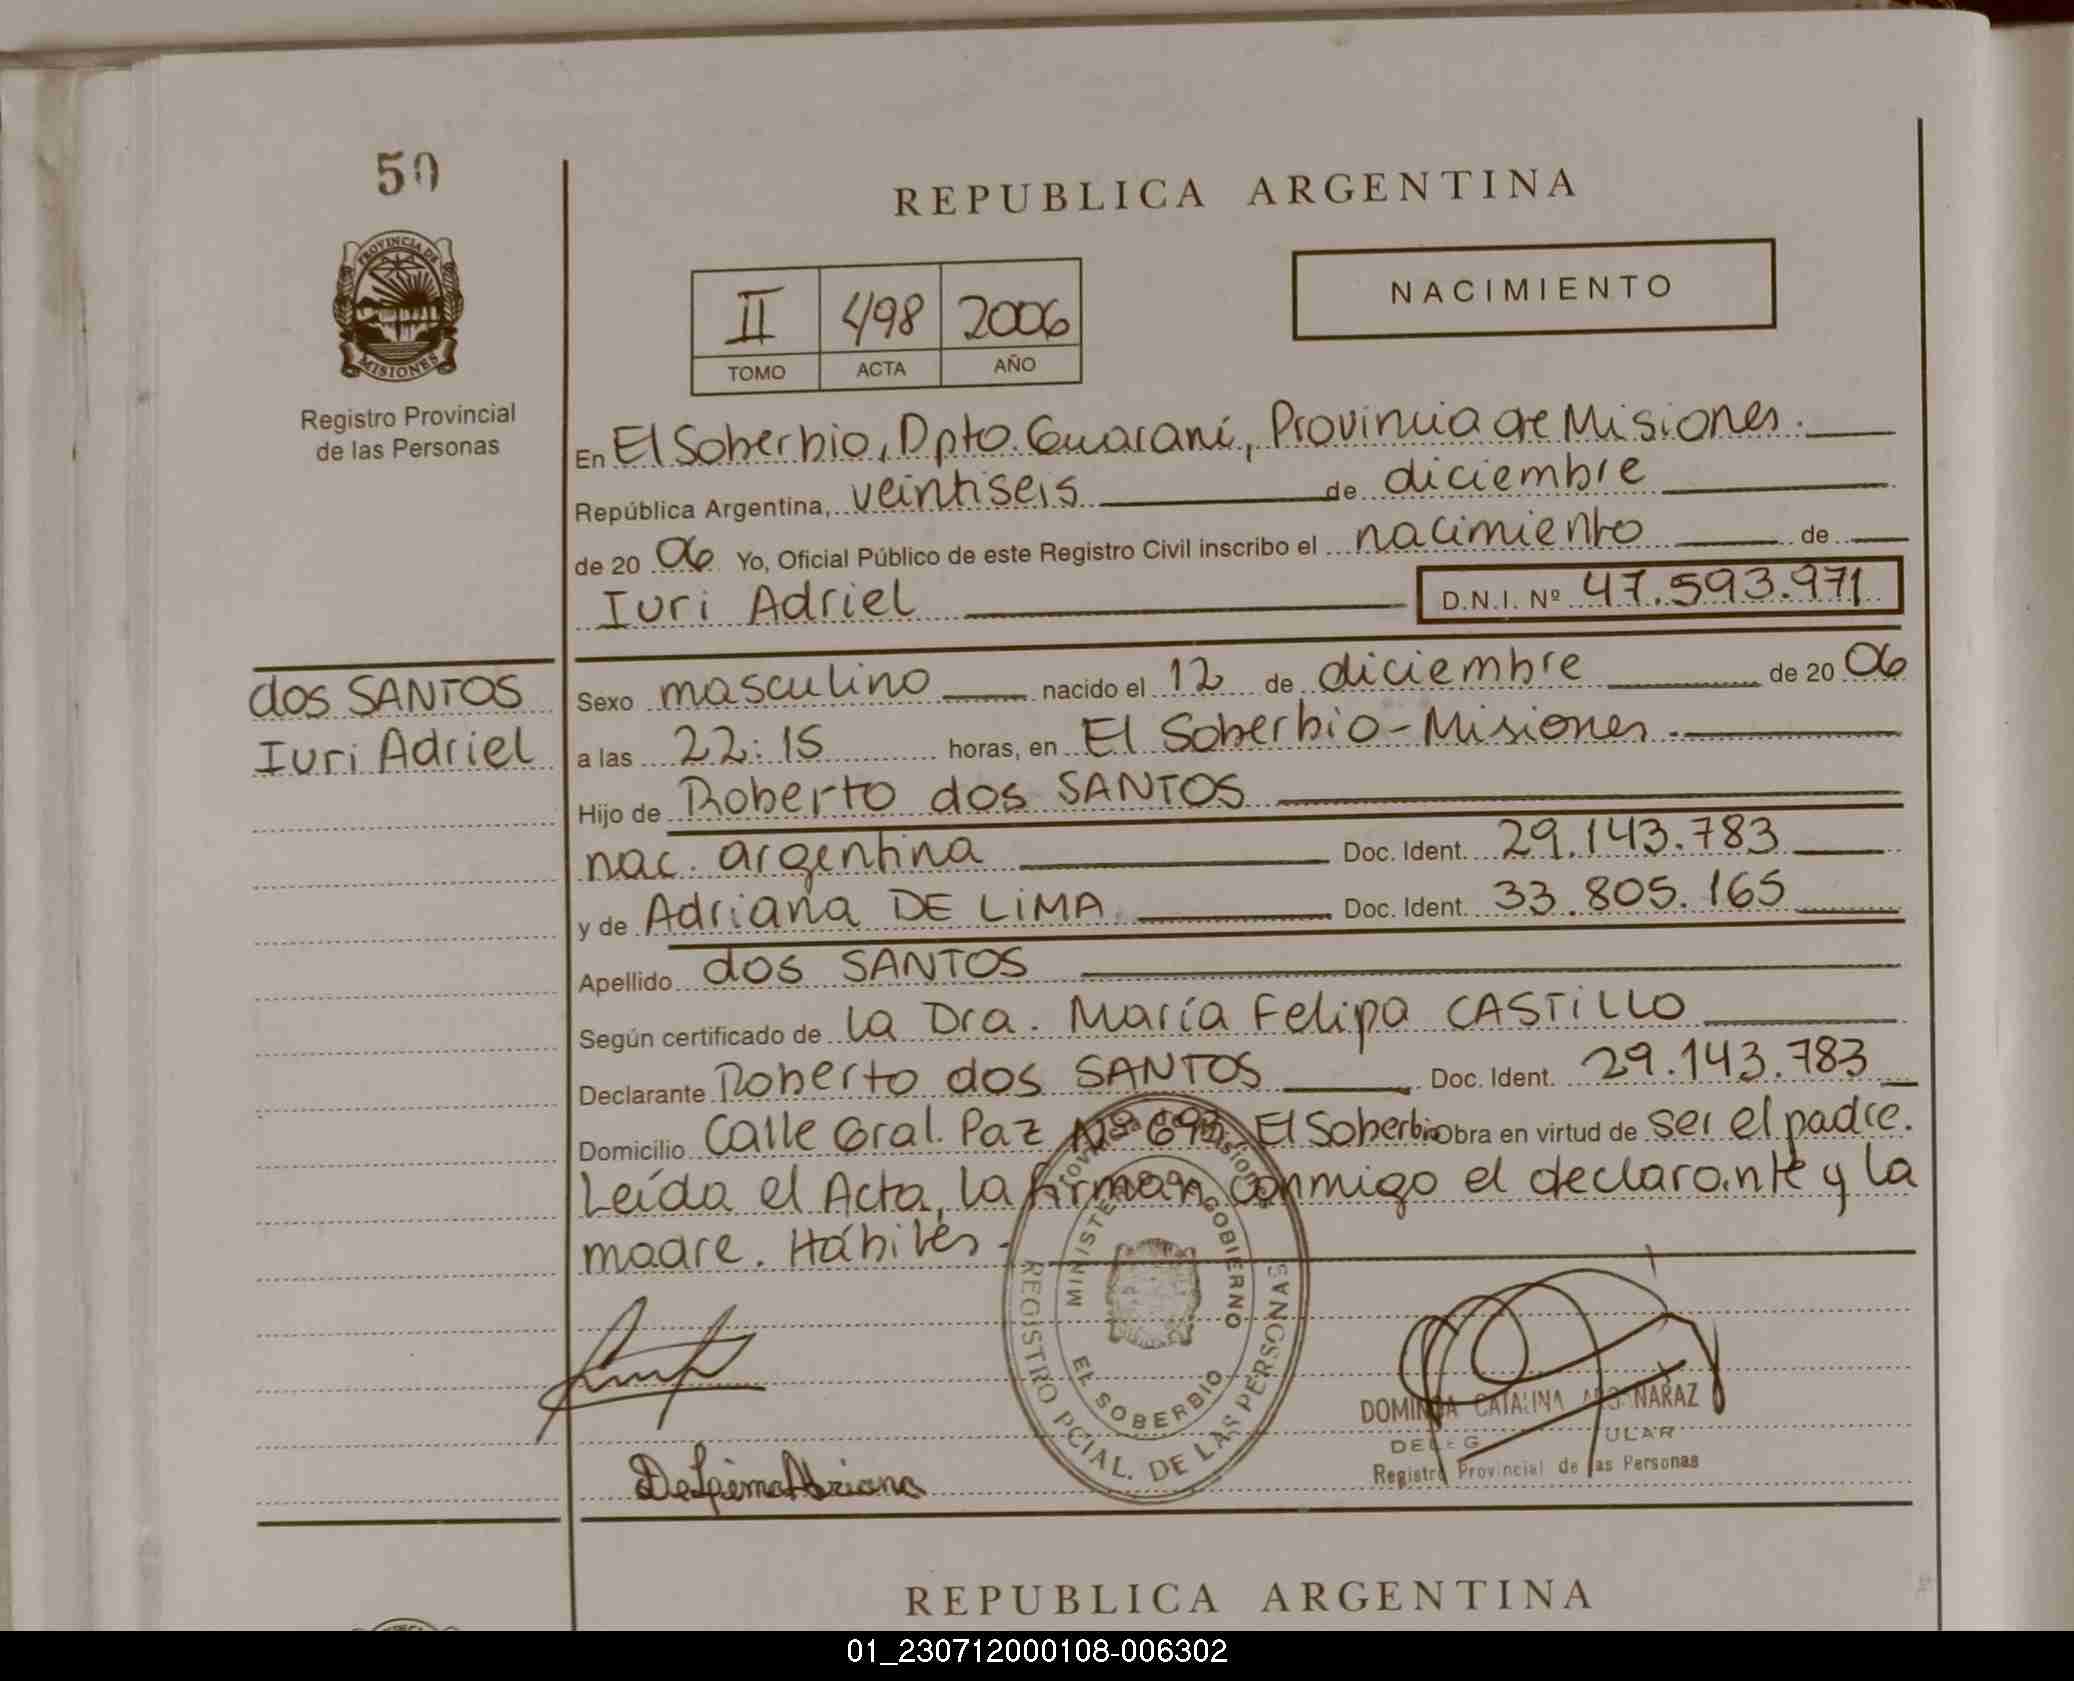 50
REPUBLICA ARGENTINA
PROVINCIA DE
MISIONES
Registro Provincial
de las Personas
II 498 2006
TOMO ACTA AÑO
NACIMIENTO
En El Soberbio, Dpto. Guaraní, Provincia de Misiones.
República Argentina, veintiseis de diciembre
de 20 06 Yo, Oficial Público de este Registro Civil inscribo el nacimiento de
Iuri Adriel D.N.I. Nº 47.593.971
dos SANTOS
Iuri Adriel
Sexo masculino nacido el 12 de diciembre de 20 06
a las 22:15 horas, en El Soberbio - Misiones.
Hijo de Roberto dos SANTOS
nac. argentina Doc. Ident. 29.143.783
y de Adriana DE LIMA Doc. Ident. 33.805.165
Apellido dos SANTOS
Según certificado de la Dra. María Felipa CASTILLO
Declarante Roberto dos SANTOS Doc. Ident. 29.143.783
Domicilio Calle Gral. Paz Nº El Soberbio obra en virtud de ser el padre.
Leída el Acta, la firman conmigo el declarante y la
madre. Hábiles.
Provincia de Misiones
MINISTERIO DE GOBIERNO
EL SOBERBIO
REGISTRO PCIAL. DE LAS PERSONAS
De Lima Adriana
CATALINA
Registro Provincial de las Personas
REPUBLICA ARGENTINA
01_230712000108-006302